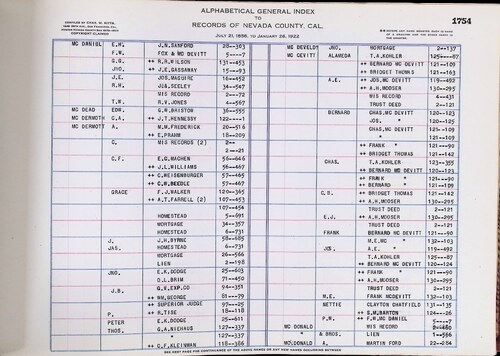 ALPHABETICAL GENERAL INDEX
TO
RECORDS OF NEVADA COUNTY, CAL.
JULY 21, 1856, TO JANUARY 26, 1922
COPYRIGHT CLAIMED
1754
MC DANIEL E.M. J.N. SANFORD 28--303
F.W. FOX & MC DEVITT 5---7
G.G. ++ R.H. WILSON 131--453
JNO. ++ J.E. GASSAWAY 15--93
J.E. JOS, MAGUIRE 15--452
R.H. J&A, SEELEY 34--547
MIS RECORD 2--72
T.W. R.V. JONES 4--567
MC DEAD EDW, G.W. BRISTOW 36--555
MC DERMOTH G.A. ++ J.T. HENNESSY 122---1
MC DERMOTT A. M.M. FREDERICK 20--516
++ E, PRAHM 18--209
C. MIS RECORDS (2) 2--
2--21
C.F. E.O. MACHEN 56--646
++ J.L. WILLIAMS 56--467
++ C, WEISENBURGER 57--465
++ C.W, BEEDLE 57--467
GRADE F.J. WALKER 120--345
++ A.T. FARRELL (2) 107--453
107--454
HOMESTEAD 5--691
MORTGAGE 34--357
HOMESTEAD 6--731
J. J.H, BYRNE 58--605
JAS. HOMESTEAD 6--731
MORTGAGE 26--566
LIEN 2--198
JNO. E.K, DODGE 25--603
D.L, BRIM 71--450
J.B. G.V. EXP, CO 94--351
++ WM, GEORGE 81--79
++ SUPERIOR JUDGE 97--25
P. ++ R, TISE 18--118
PETER E.R, DODGE 25--611
THOS. G.A, NIEHAUS 127--337
" 127--337
++ C.F, KLEINMAN 118--386
MC DEVELOT JNO. MORTGAGE 2--137
MC DEVITT ALAMEDA T.A, KOHLER 125---87
++ BERNARD MC DEVITT 121--109
++ BRIDGET THOMAS 121--163
A.E. ++ JOS, MC DEVITT 119--492
++ A.H, MOOSER 130--295
MIS RECORD 4--431
TRUST DEED 2--121
BERNARD CHAS, MC DEVITT 120--123
JOS, " 120--125
CHAS, MC DEVITT 121--109
" 121--109
++ FRANK " 121--90
++ BRIDGET THOMAS 121--142
CHAS. T.A, KOHLER 123--355
++ BERNARD MC DEVITT 120--123
++ FRANK " 121--90
++ BERNARD " 121--109
C.B. ++ BRIDGET THOMAS 121--142
++ A.H, MOOSER 130--295
TRUST DEED 2--121
E.J. ++ A.H, MOOSER 130--295
TRUST DEED 2--121
FRANK BERNARD MC DEVITT 121--90
M.E, MC " 132--103
JOS. A.E, " 119--492
T.A, KOHLER 125--87
++ BERNARD MC DEVITT 120--124
++ FRANK " 121--90
++ A.H, MOOSER 130--295
TRUST DEED 2--121
M.E. FRANK MCDEVITT 132--103
NETTIE CLAYTON CHATFIELD 131--135
++ E.M, BARTON 124--26
P.W. ++ F.W, MC DANIEL 5---7
MC DONALD MIS RECORD
& BROS. LIEN 1--566
MC DONALD A. MARTIN FORD 22--254
SEE NEXT PAGE FOR CONTINUANCE OF THE ABOVE NAMES OR ANY NEW NAMES OCCURRING BETWEEN